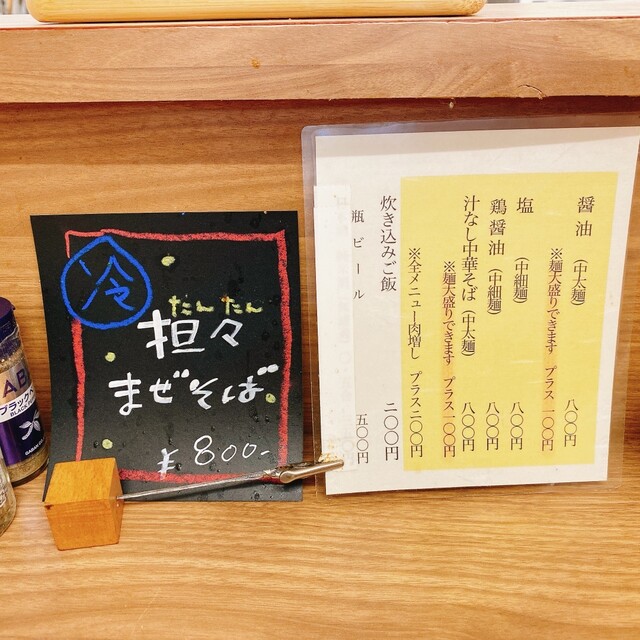 冷
たんたん
担々
まぜそば
¥800-
醤油(中太麺) 八〇〇円
※麺大盛りできます プラス一〇〇円
塩(中細麺) 八〇〇円
鶏醤油(中細麺) 八〇〇円
汁なし中華そば(中太麺) 八〇〇円
※麺大盛りできます プラス一〇〇円
※全メニュー肉増し プラス二〇〇円
炊き込みご飯 二〇〇円
瓶ビール 五〇〇円
ブラックペ
BLACK